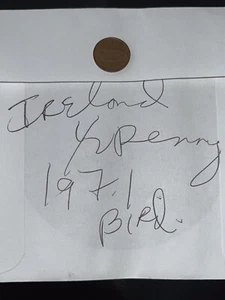 IReland
1/2 Penny
197.1
BIRd.